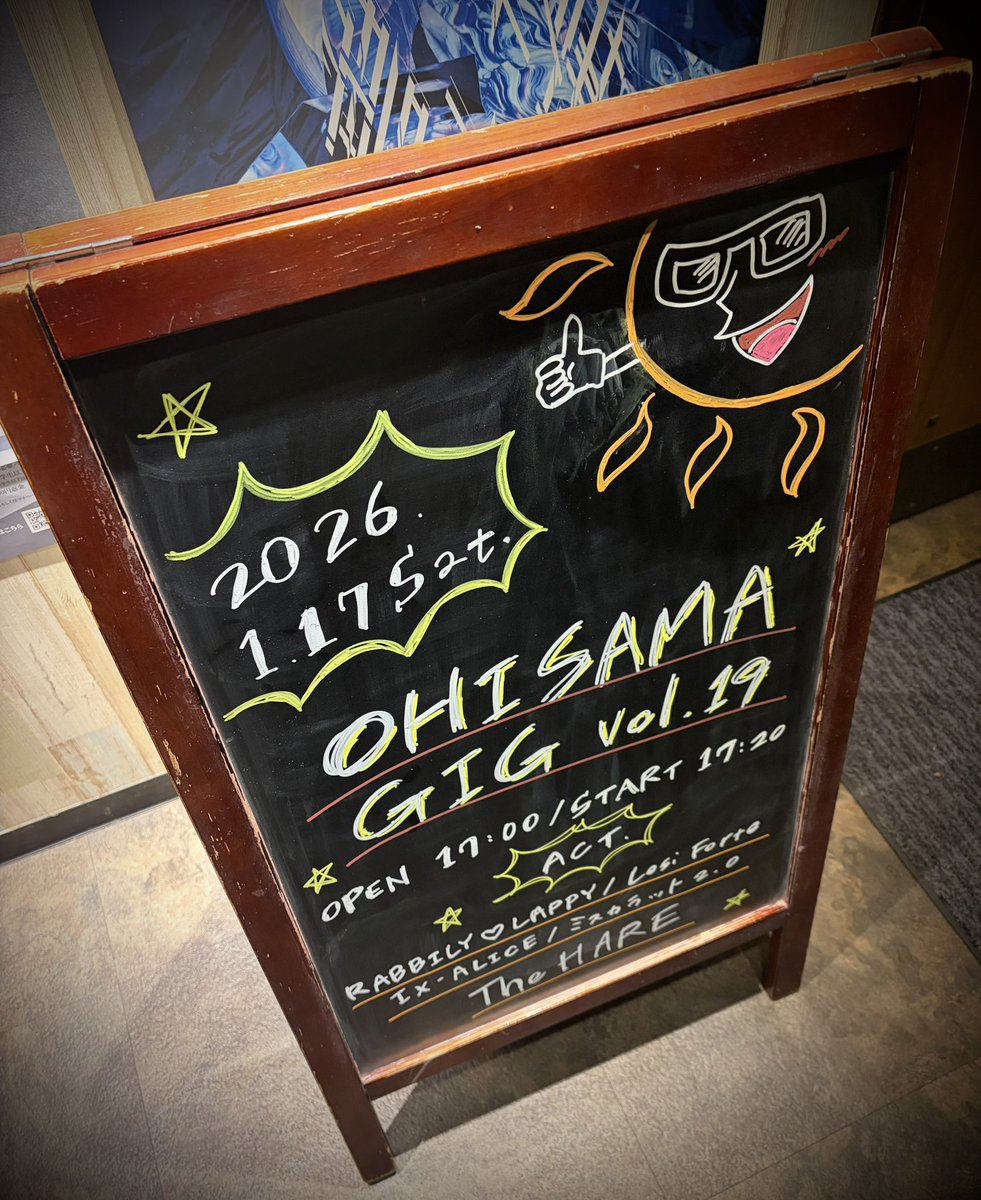 2026.
1.17 Sat.
OHISAMA
GIG vol.19
OPEN 17:00/START 17:20
ACT.
RABBILY♡LAPPY/Losi Forte
IX-ALICE/ミスカラット2.0
The HARE
はこちら